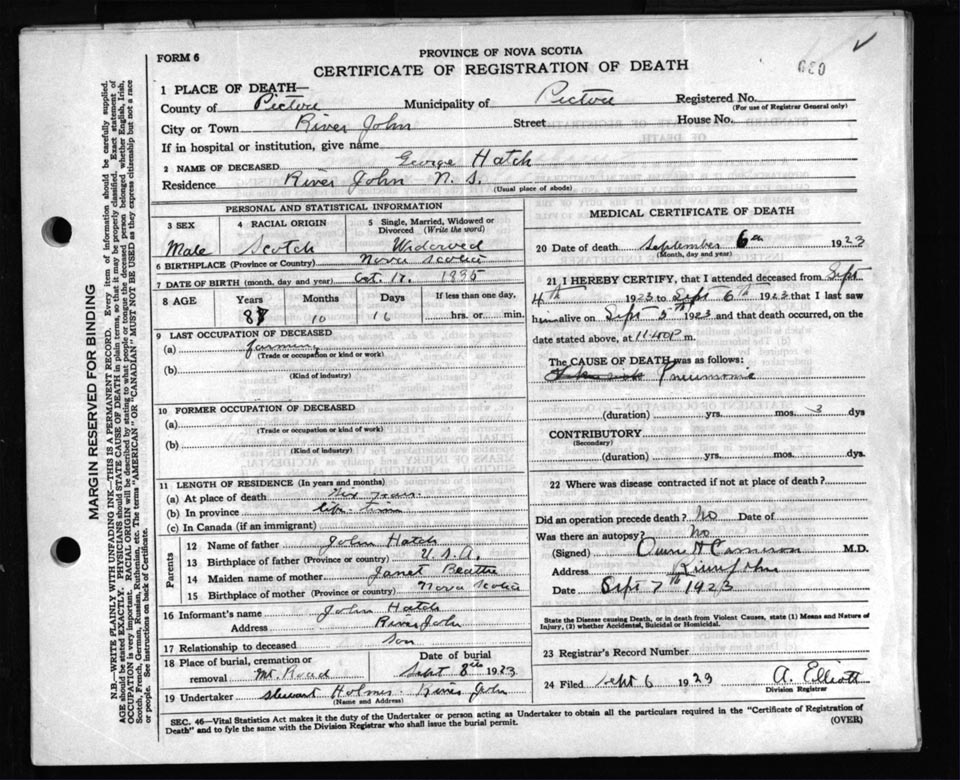 FORM 6
PROVINCE OF NOVA SCOTIA
CERTIFICATE OF REGISTRATION OF DEATH
030
MARGIN RESERVED FOR BINDING
N.B.—WRITE PLAINLY WITH UNFADING INK—THIS IS A PERMANENT RECORD. Every item of information should be carefully supplied.
AGE should be stated EXACTLY. PHYSICIANS should STATE CAUSE OF DEATH in plain terms, so that it may be properly classified. Exact statement of
OCCUPATION is very important. RACIAL ORIGIN will be described by stating to what people or tongue the deceased person belonged whether English, Irish,
Scotch, French, German, Russian, Ruthenian, etc. The terms "AMERICAN" OR "CANADIAN" MUST NOT BE USED as they express citizenship but not a race
or people. See instructions on back of Certificate.
1 PLACE OF DEATH—
County of Pictou Municipality of Pictou Registered No.
(For use of Registrar General only)
City or Town River John Street House No.
If in hospital or institution, give name
2 NAME OF DECEASED George Hatch
Residence River John N. S.
(Usual place of abode)
PERSONAL AND STATISTICAL INFORMATION
3 SEX 4 RACIAL ORIGIN 5 Single, Married, Widowed or Divorced (Write the word)
Male Scotch Widowed
6 BIRTHPLACE (Province or Country) Nova Scotia
7 DATE OF BIRTH (month, day and year) Oct. 17. 1835
8 AGE Years Months Days If less than one day,
87 10 16 hrs. or min.
9 LAST OCCUPATION OF DECEASED
(a) farming
(Trade or occupation or kind of work)
(b)
(Kind of industry)
10 FORMER OCCUPATION OF DECEASED
(a)
(Trade or occupation or kind of work)
(b)
(Kind of industry)
11 LENGTH OF RESIDENCE (In years and months)
(a) At place of death Six years
(b) In province life time
(c) In Canada (if an immigrant)
Parents
12 Name of father John Hatch
13 Birthplace of father (Province or country) U. S. A.
14 Maiden name of mother Janet Beattie
15 Birthplace of mother (Province or country) Nova Scotia
16 Informant's name John Hatch
Address River John
17 Relationship to deceased son
18 Place of burial, cremation or removal Mt. Road Date of burial Sept 8th 1923
19 Undertaker Stewart Holmes. River John
(Name and Address)
MEDICAL CERTIFICATE OF DEATH
20 Date of death September 6th 1923
(Month, day and year)
21 I HEREBY CERTIFY, that I attended deceased from Sept
4th 1923 to Sept 6th 1923 that I last saw
him alive on Sept 5th 1923 and that death occurred, on the
date stated above, at 11-40 P m.
The CAUSE OF DEATH was as follows:
Pneumonia
(duration) yrs. mos. 3 dys
CONTRIBUTORY
(Secondary)
(duration) yrs. mos. dys
22 Where was disease contracted if not at place of death?
Did an operation precede death? No Date of
Was there an autopsy? No
(Signed) H Cameron M.D.
Address River John
Date Sept 7th 1923
State the Disease causing Death, or in death from Violent Causes, state (1) Means and Nature of
Injury, (2) whether Accidental, Suicidal or Homicidal.
23 Registrar's Record Number
24 Filed Sept 6 1923 A. Elliott
Division Registrar
SEC. 46—Vital Statistics Act makes it the duty of the Undertaker or person acting as Undertaker to obtain all the particulars required in the "Certificate of Registration of
Death" and to fyle the same with the Division Registrar who shall issue the burial permit.
(OVER)